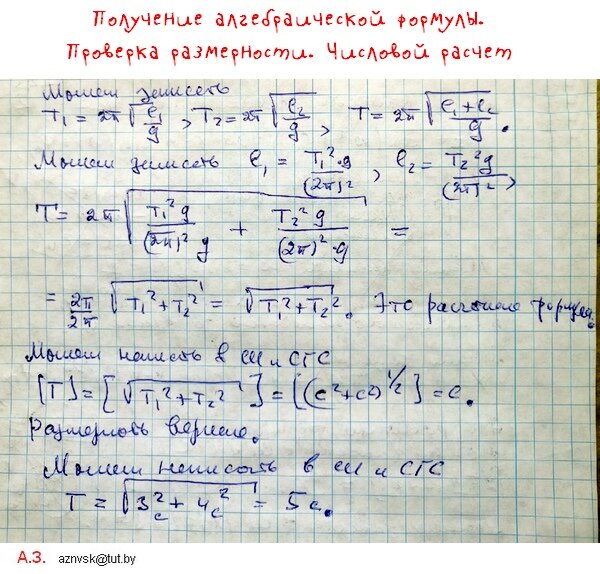 Получение алгебраической формулы.
Проверка размерности. Числовой расчет
Можем записать
T₁ = 2π√(ℓ₁/g), T₂ = 2π√(ℓ₂/g), T = 2π√((ℓ₁+ℓ₂)/g).
Можем записать ℓ₁ = T₁²·g/(2π)², ℓ₂ = T₂²g/(2π)²,
T = 2π√(T₁²g/((2π)²g) + T₂²g/((2π)²·g)) =
= 2π/2π √(T₁²+T₂²) = √(T₁²+T₂²). Это расчетная формула.
Можем написать в СИ и СГС
[T] = [√(T₁²+T₂²)] = [(с²+с²)^1/2] = с.
Размерность верна.
Можем написать в СИ и СГС
T = √(3²с + 4²с) = 5с.
А.З. aznvsk@tut.by